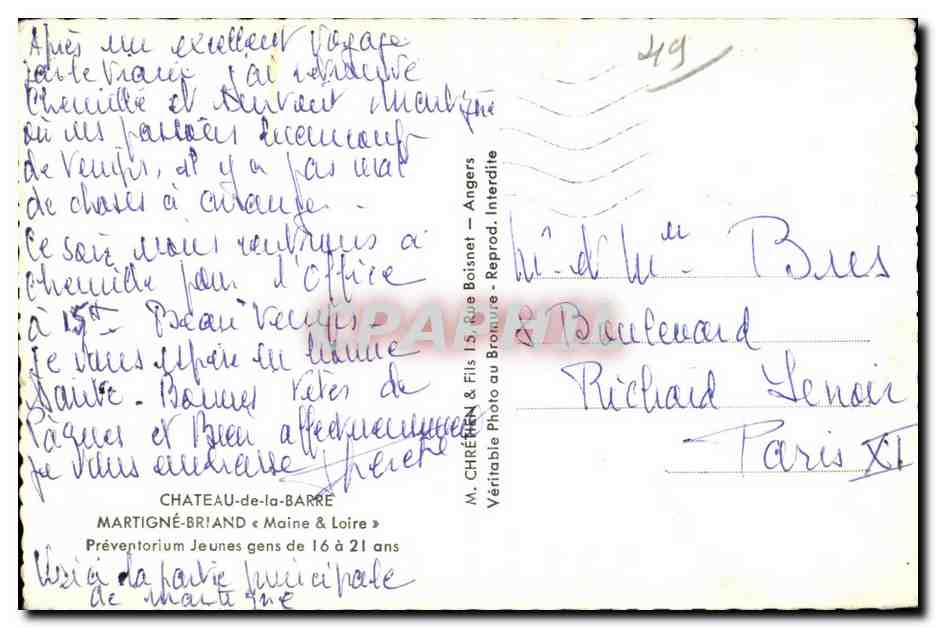 Après un excellent voyage
par le train j'ai retrouvé
Chemillé et surtout Martigné
où nous passons beaucoup
de temps, il y a pas mal
de choses à arranger.
Ce soir nous rentrons à
Chemillé pour l'Office
à 15H - Beau temps -
je vous espère en bonne
santé - Bonnes Fêtes de
Pâques et Bien affectueusement
je vous embrasse
CHATEAU-de-la-BARRE
MARTIGNÉ-BRIAND « Maine & Loire »
Préventorium Jeunes gens de 16 à 21 ans
Voici la partie principale
de Martigné
M. CHRÉTIEN & Fils 15, Rue Boisnet — Angers
Véritable Photo au Bromure - Reprod. Interdite
49
Mr et Mme Bres
8 Boulevard
Richard Lenoir
Paris XI
CPAPHIL